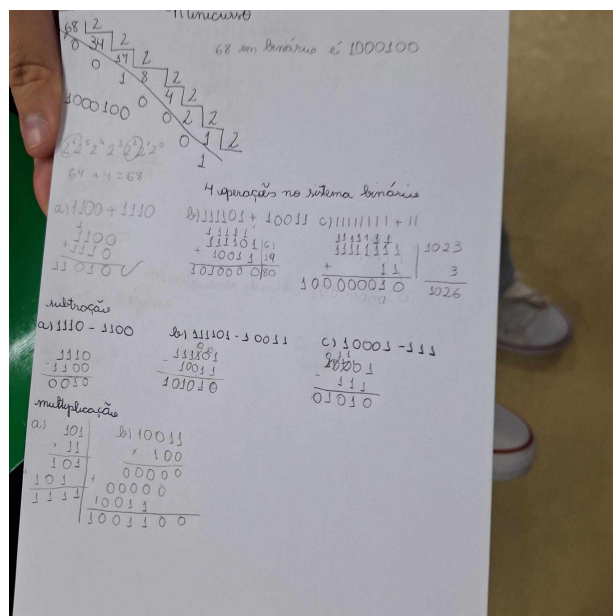 Minicurso
68 | 2
0 34 | 2
0 17 | 2
1 8 | 2
0 4 | 2
0 2 | 2
0 1 | 2
1
1000100
68 em binário é 1000100
2⁶ 2⁵ 2⁴ 2³ 2² 2¹ 2⁰
64 + 4 = 68
4 operações no sistema binário
a) 1100 + 1110
1
1100
+ 1110
11010 ✓
b) 111101 + 10011
11111
111101 | 61
+ 10011 | 19
1010000 | 80
c) 11111111 + 11
1111111
11111111 | 1023
+ 11 | 3
100000010 | 1026
subtração
a) 1110 - 1100
1110
- 1100
0010
b) 111101 - 10011
111101
- 10011
101010
c) 10001 - 111
10001
- 111
01010
multiplicação
a) 101
× 11
101
101 +
1111
b) 10011
× 100
00000
00000
10011
1001100